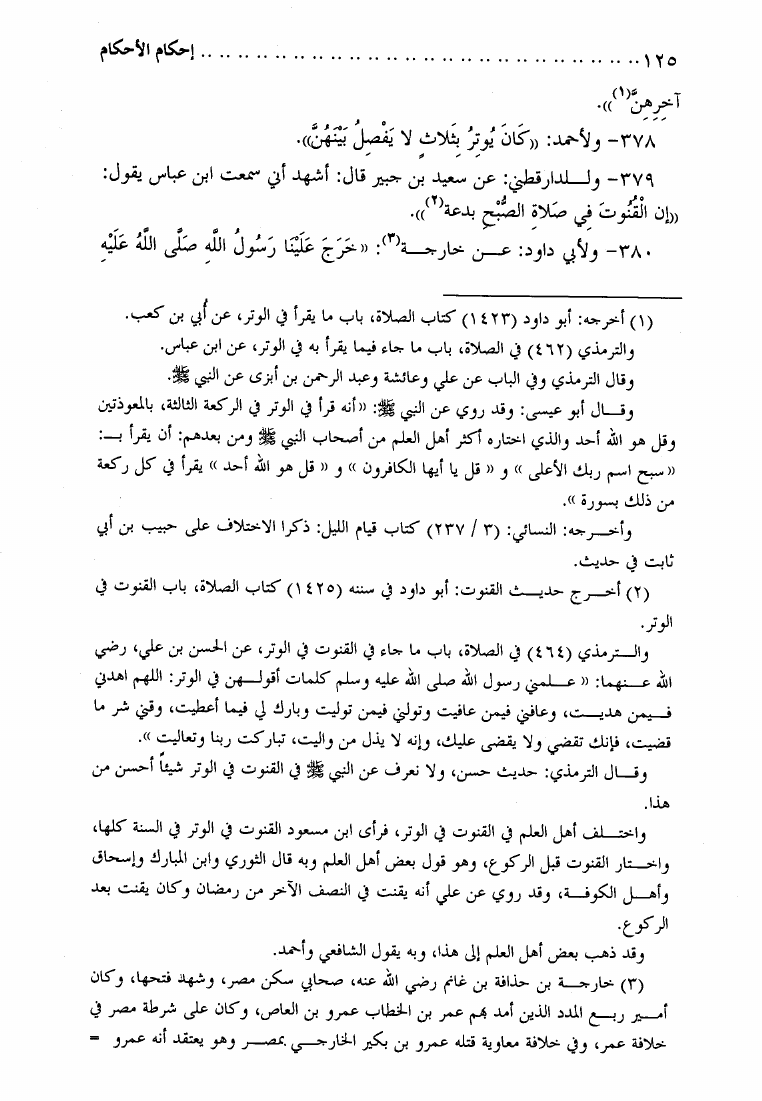 ١٢٥ .............................................. إحكام الأحكام
آخِرِهِنَّ(١))).
٣٧٨- ولأحمد: ((كَانَ يُوتِرُ بِثَلاثٍ لا يَفْصِلُ بَيْنَهُنَّ)).
٣٧٩- وللدارقطني: عن سعيد بن جبير قال: أشهد أني سمعت ابن عباس يقول:
((إن الْقُنُوتَ فِي صَلاةِ الصُّبْحِ بدعة(٢))).
٣٨٠- ولأبي داود: عن خارجة(٣): «خَرَجَ عَلَيْنَا رَسُولُ اللَّهِ صَلَّى اللَّهُ عَلَيْهِ
(١) أخرجه: أبو داود (١٤٢٣) كتاب الصلاة، باب ما يقرأ في الوتر، عن أُبي بن كعب.
والترمذي (٤٦٢) في الصلاة، باب ما جاء فيما يقرأ به في الوتر، عن ابن عباس.
وقال الترمذي وفي الباب عن علي وعائشة وعبد الرحمن بن أبزى عن النبي ﷺ.
وقال أبو عيسى: وقد روي عن النبي ﷺ: «أنه قرأ في الوتر في الركعة الثالثة، بالمعوذتين
وقل هو الله أحد والذي اختاره أكثر أهل العلم من أصحاب النبي ﷺ ومن بعدهم: أن يقرأ بـ:
«سبح اسم ربك الأعلى» و «قل يا أيها الكافرون» و «قل هو الله أحد» يقرأ في كل ركعة
من ذلك بسورة».
وأخرجه: النسائي: (٣ / ٢٣٧) كتاب قيام الليل: ذكرا الاختلاف على حبيب بن أبي
ثابت في حديث.
(٢) أخرج حديث القنوت: أبو داود في سننه (١٤٢٥) كتاب الصلاة، باب القنوت في
الوتر.
والترمذي (٤٦٤) في الصلاة، باب ما جاء في القنوت في الوتر، عن الحسن بن علي، رضي
الله عنهما: «علمني رسول الله صلى الله عليه وسلم كلمات أقولهن في الوتر: اللهم اهدني
فيمن هديت، وعافني فيمن عافيت وتولني فيمن توليت وبارك لي فيما أعطيت، وقني شر ما
قضيت، فإنك تقضي ولا يقضى عليك، وإنه لا يذل من واليت، تباركت ربنا وتعاليت».
وقال الترمذي: حديث حسن، ولا نعرف عن النبي ﷺ في القنوت في الوتر شيئاً أحسن من
هذا.
واختلف أهل العلم في القنوت في الوتر، فرأى ابن مسعود القنوت في الوتر في السنة كلها،
واختار القنوت قبل الركوع، وهو قول بعض أهل العلم وبه قال الثوري وابن المبارك وإسحاق
وأهل الكوفة، وقد روي عن علي أنه يقنت في النصف الآخر من رمضان وكان يقنت بعد
الركوع.
وقد ذهب بعض أهل العلم إلى هذا، وبه يقول الشافعي وأحمد.
(٣) خارجة بن حذافة بن غانم رضي الله عنه، صحابي سكن مصر، وشهد فتحها، وكان
أمير ربع المدد الذين أمد بهم عمر بن الخطاب عمرو بن العاص، وكان على شرطة مصر في
خلافة عمر، وفي خلافة معاوية قتله عمرو بن بكير الخارجي بمصر وهو يعتقد أنه عمرو =